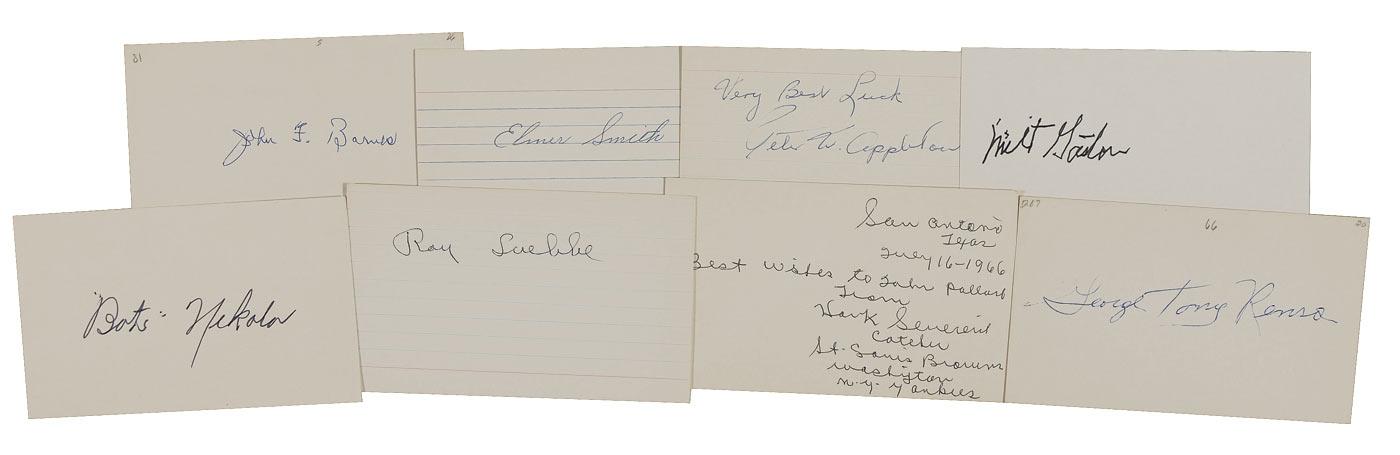 31 5 26
John F. Barnes
Elmer Smith
Very Best Luck
Peter W. Appleton
Milt Gaston
"Bots" Nekola
Ray Luebbe
San Antonio
Texas
July 16-1966
Best Wishes to John Pollard
From
Hank Severeid
Catcher
St. Louis Browns
Washington
N-Y-Yankees
217 66 20
George Tony Rensa